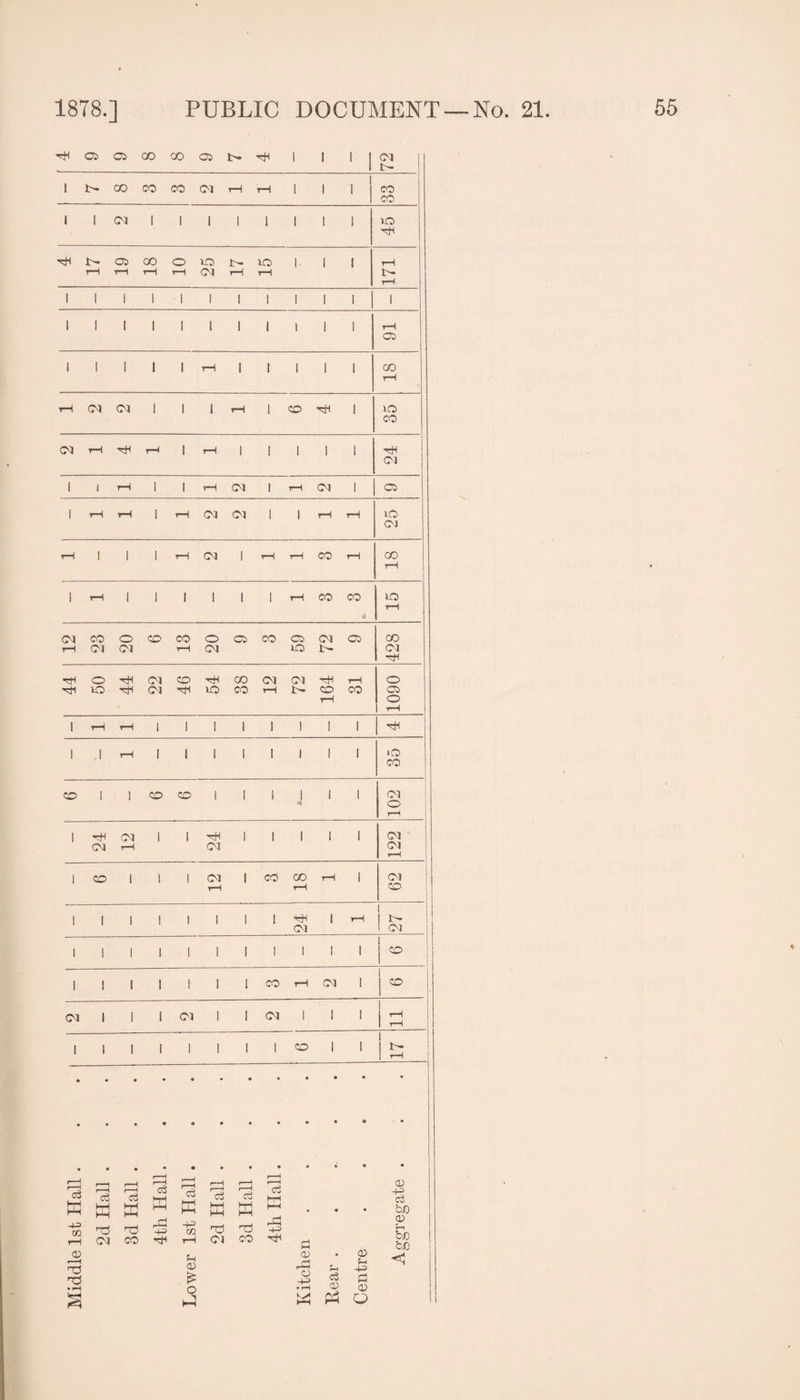 1878.] PUBLIC DOCUMENT—No. 21. 55
Middle 1st Hall . . . - 2 - - - - - 6 - - 44 12 - 1 - - 2 1 - - - 4 - - 4
2d Hall . . . - - - - - 6 24 - - 1 50 23 1 - 1 - 1 2 - - - 17 - 7 9
3d Hall . . . - - - - - - 12 - 1 1 44 20 - - 1 1 4 2 - - - 19 2 8 9
4th Hall . . . - - - - - - - 6 - - 22 6 - - - - 1 - - - - 18 - 3 8
Lower 1st Hall . . . - 2 - - - - - 6 - - 46 13 - 1 1 - - - - - - 10 - 3 8
2d Hall . . . - - - - - 12 24 - - - 54 20 - 2 2 1 1 - 1 - - 25 - 2 9
3d Hall . . . - - - - - - - - - - 38 9 - - 2 2 - 1 - - - 17 - 1 7
4th Hall . . . - 2 3 - - 3 - - - - 12 3 - 1 - - - - - - - 15 - 1 4
Kitchen . . . 6 - 1 - 24 18 - - - - 72 59 1 1 - 1 - 6 - - - - - - -
Rear . . . . - - 2 - - 1 - - - - 164 72 3 3 1 2 - 4 - - - - - - -
Centre . . . - - - - 1 - - - - - 31 9 3 1 1 - - - - - - - - - -
Aggregate . . . 17 11 6 6 27 62 122 102 35 4 1090 428 15 18 25 9 24 35 18 91 - 171 45 33 72